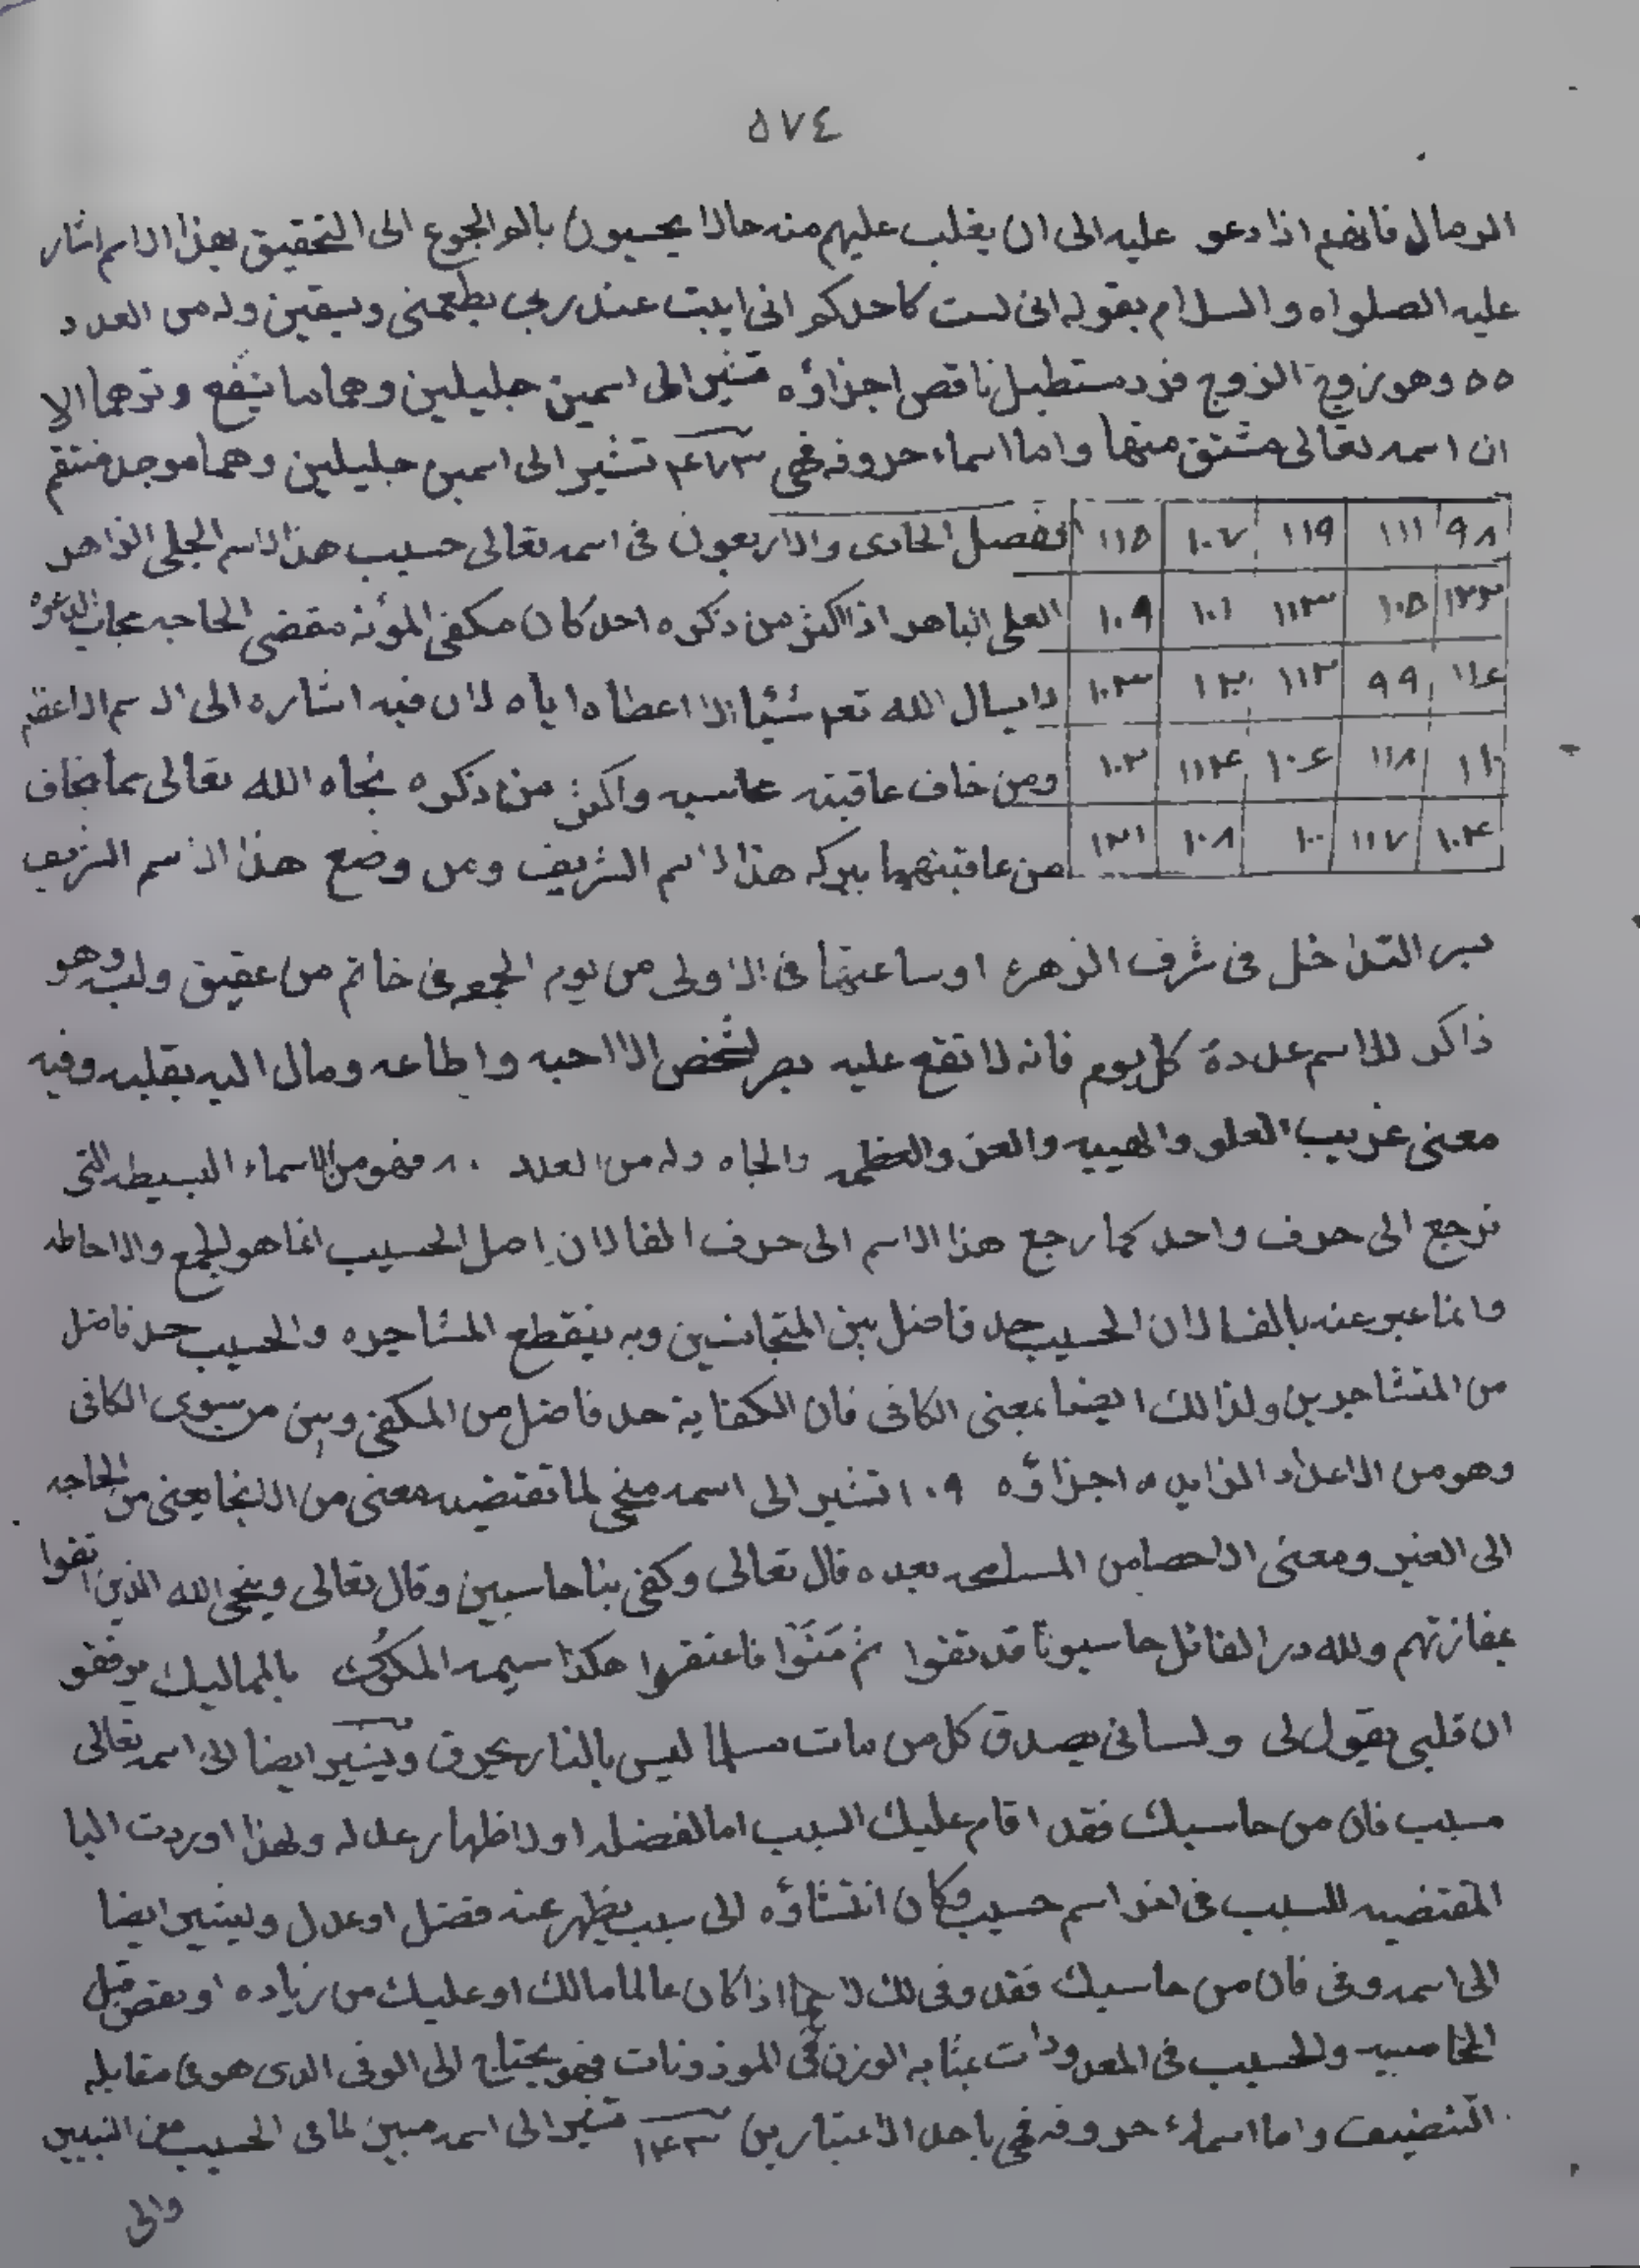 ٥٧٤
الوصال فانهم اذا دعو عليه الى ان يغلب عليهم منه حالا يحسبون بالم الجوع الى التحقيق بهذا الاسم اشار
عليه الصلواه والسلام بقوله انى لست كاحدكم انى ابيت عند ربى يطعمنى ويسقين وله من العدد
٥٥٠ وهو زوج الزوج فرد مستطيل ناقص اجزاؤه تشير الى اسمين جليلين وهما مانع وترهما الا
ان اسمه تعالى مشتق منها واما اسماء حروفه فهى تشير الى اسمين جليلين وهما موجد منتقم
٩٨ ١١١ ١١٩ ١٠٧ ١١٥ الفصل الحادى والاربعون فى اسمه تعالى حسيب هذا الاسم الجلى الزاهر
١٢٢ ١٠٥ ١١٣ ١٠١ ١٠٩ العلى الباهر اذا اكثر من ذكره احد كان مكفى المؤنه مقضى الحاجه مجاب الدعوه
١١٤ ٩٩ ١١٢ ١٢٠ ١٠٣ لا يسال الله تعم شيئا الا اعطاه اياه لان فيه اشاره الى الاسم الاعظم
١١٠ ١١٨ ١٠٦ ١١٤ ١٠٢ ومن خاف عاقبته محاسبه واكثر من ذكره نجاه الله تعالى مما يخاف
١٠٤ ١١٧ ١٠٠ ١٠٨ ١٢١ من عاقبتهما ببركه هذا الاسم الشريف ومن وضع هذا الاسم الشريف
بسر التداخل فى شرف الزهره او ساعتها فى الاولى من يوم الجمعه فى خاتم من عقيق ولبسه وهو
ذاكر للاسم عدده كل يوم فانه لا تقع عليه بصر لشخص الا احبه واطاعه ومال اليه بقلبه وفيه
معنى غريب العلو والهيبه والعز والعظمه والجاه وله من العدد ٨٠ فهو من الاسماء البسيطه التى
ترجع الى حرف واحد كما رجع هذا الاسم الى حرف الفا لان اصل الحسيب انما هو الجمع والاحاطه
وانما عبر عنه بالفا لان الحسيب حد فاصل بين المتجانسين وبه ينقطع المشاجره والحسيب حد فاصل
من المتشاجرين ولذالك ايضا بمعنى الكافى فان الكفاية حد فاصل من المكفى وبين من سوى الكافى
وهو من الاعداد الزايده اجزاؤه ١٠٩ تشير الى اسمه منجى لما تقتضيه معنى من الانجا يعنى من الحاجه
الى الغير ومعنى الاحصا من بعده قال تعالى وكفى بنا حاسبين وقال تعالى وينجى الله الذين اتقوا
بمفازتهم ولله در القائل حاسبونا قد تقوا ثم مَنَوْا فاعتقوا هكذا سيمه المُلُوك بالمماليك يرفقو
ان قلبى يقول لى ولسانى يصدق كل من مات مسلما ليس بالنار يحرق ويشير ايضا الى اسمه تعالى
مسبب فان من حاسبك فقد اقام عليك السبب اما لفضله او لاظهار عدله ولهذا اوردت البا
المقتضيه للسبب فى اخر اسم حسيب فكان انتشاؤه الى سبب يظهر عنه فضل او عدل ويشير ايضا
الى اسمه وفى فان من حاسبك فقد وفى لك لا اذا كان عالما مالك او عليك من زياده او نقص قبل
المحاسبه والحسيب فى المعدودات بمثابه الوزن فى الموزونات فهو يحتاج الى الوفى الذى هو فى مقابله
التضيف واما اسماء حروفه فهى باحد الاعتبارين تشير الى اسمه مبين لما فى الحسيب من التبيين
والى